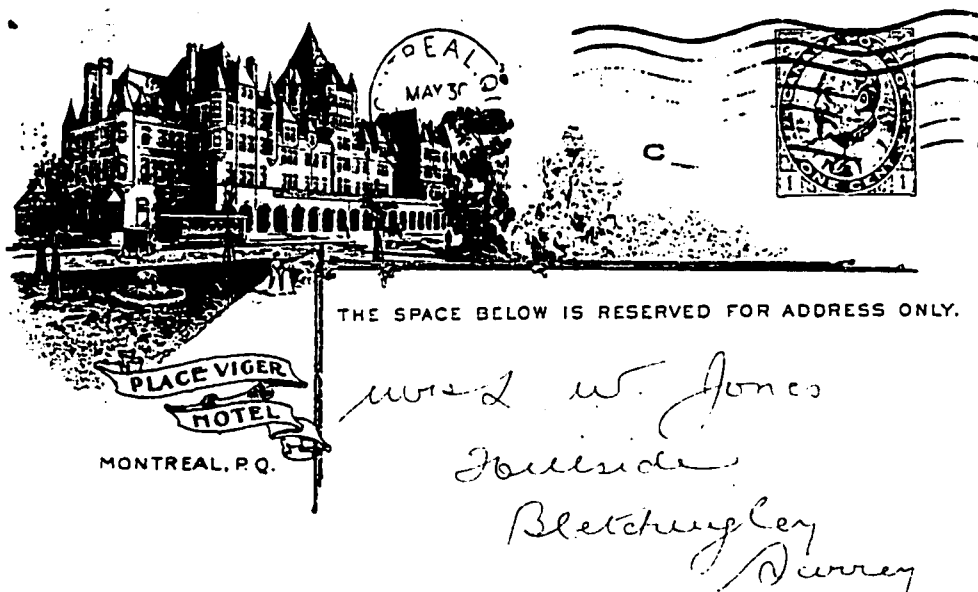 MAY 30
CANADA POSTAGE
ONE CENT
1 1
C
THE SPACE BELOW IS RESERVED FOR ADDRESS ONLY.
PLACE VIGER
HOTEL
MONTREAL, P.Q.
Mrs L W. Jones
Hillside
Bletchingley
Surrey